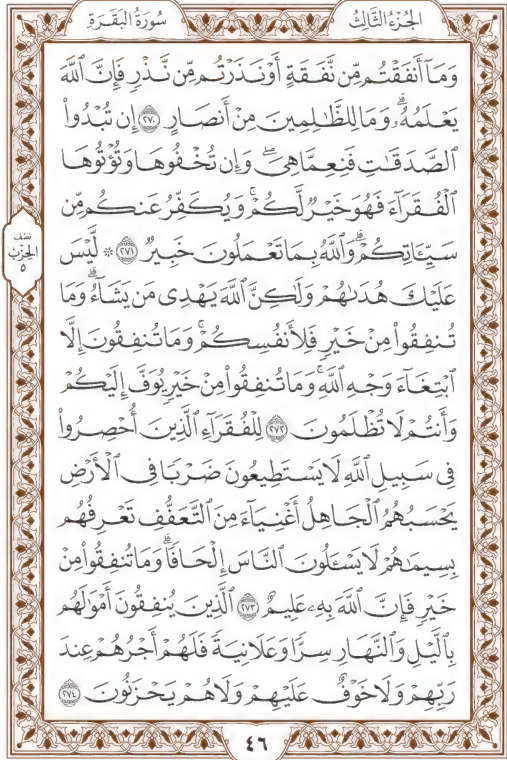 الجُزْءُ الثَّالِثُ
سُورَةُ البَقَرَةِ
وَمَآ أَنفَقْتُم مِّن نَّفَقَةٍ أَوْ نَذَرْتُم مِّن نَّذْرٍ فَإِنَّ ٱللَّهَ
يَعْلَمُهُۥۗ وَمَا لِلظَّٰلِمِينَ مِنْ أَنصَارٍ ٢٧٠ إِن تُبْدُوا۟
ٱلصَّدَقَٰتِ فَنِعِمَّا هِىَۖ وَإِن تُخْفُوهَا وَتُؤْتُوهَا
ٱلْفُقَرَآءَ فَهُوَ خَيْرٌ لَّكُمْۚ وَيُكَفِّرُ عَنكُم مِّن
سَيِّـَٔاتِكُمْۗ وَٱللَّهُ بِمَا تَعْمَلُونَ خَبِيرٌ ٢٧١ ۞ لَّيْسَ
عَلَيْكَ هُدَىٰهُمْ وَلَٰكِنَّ ٱللَّهَ يَهْدِى مَن يَشَآءُۗ وَمَا
تُنفِقُوا۟ مِنْ خَيْرٍ فَلِأَنفُسِكُمْۚ وَمَا تُنفِقُونَ إِلَّا
ٱبْتِغَآءَ وَجْهِ ٱللَّهِۚ وَمَا تُنفِقُوا۟ مِنْ خَيْرٍ يُوَفَّ إِلَيْكُمْ
وَأَنتُمْ لَا تُظْلَمُونَ ٢٧٢ لِلْفُقَرَآءِ ٱلَّذِينَ أُحْصِرُوا۟
فِى سَبِيلِ ٱللَّهِ لَا يَسْتَطِيعُونَ ضَرْبًا فِى ٱلْأَرْضِ
يَحْسَبُهُمُ ٱلْجَاهِلُ أَغْنِيَآءَ مِنَ ٱلتَّعَفُّفِ تَعْرِفُهُم
بِسِيمَٰهُمْ لَا يَسْـَٔلُونَ ٱلنَّاسَ إِلْحَافًاۗ وَمَا تُنفِقُوا۟ مِنْ
خَيْرٍ فَإِنَّ ٱللَّهَ بِهِۦ عَلِيمٌ ٢٧٣ ٱلَّذِينَ يُنفِقُونَ أَمْوَٰلَهُم
بِٱلَّيْلِ وَٱلنَّهَارِ سِرًّا وَعَلَانِيَةً فَلَهُمْ أَجْرُهُمْ عِندَ
رَبِّهِمْ وَلَا خَوْفٌ عَلَيْهِمْ وَلَا هُمْ يَحْزَنُونَ ٢٧٤
نصف
الحِزْبِ
٥
٤٦